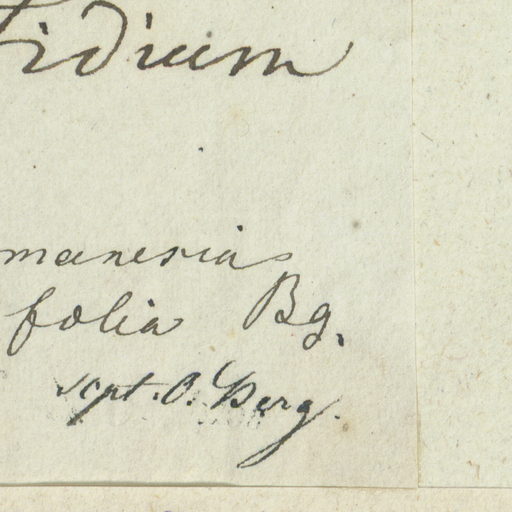 tidium
manesia
folia Bg.
scpt. O. Berg.